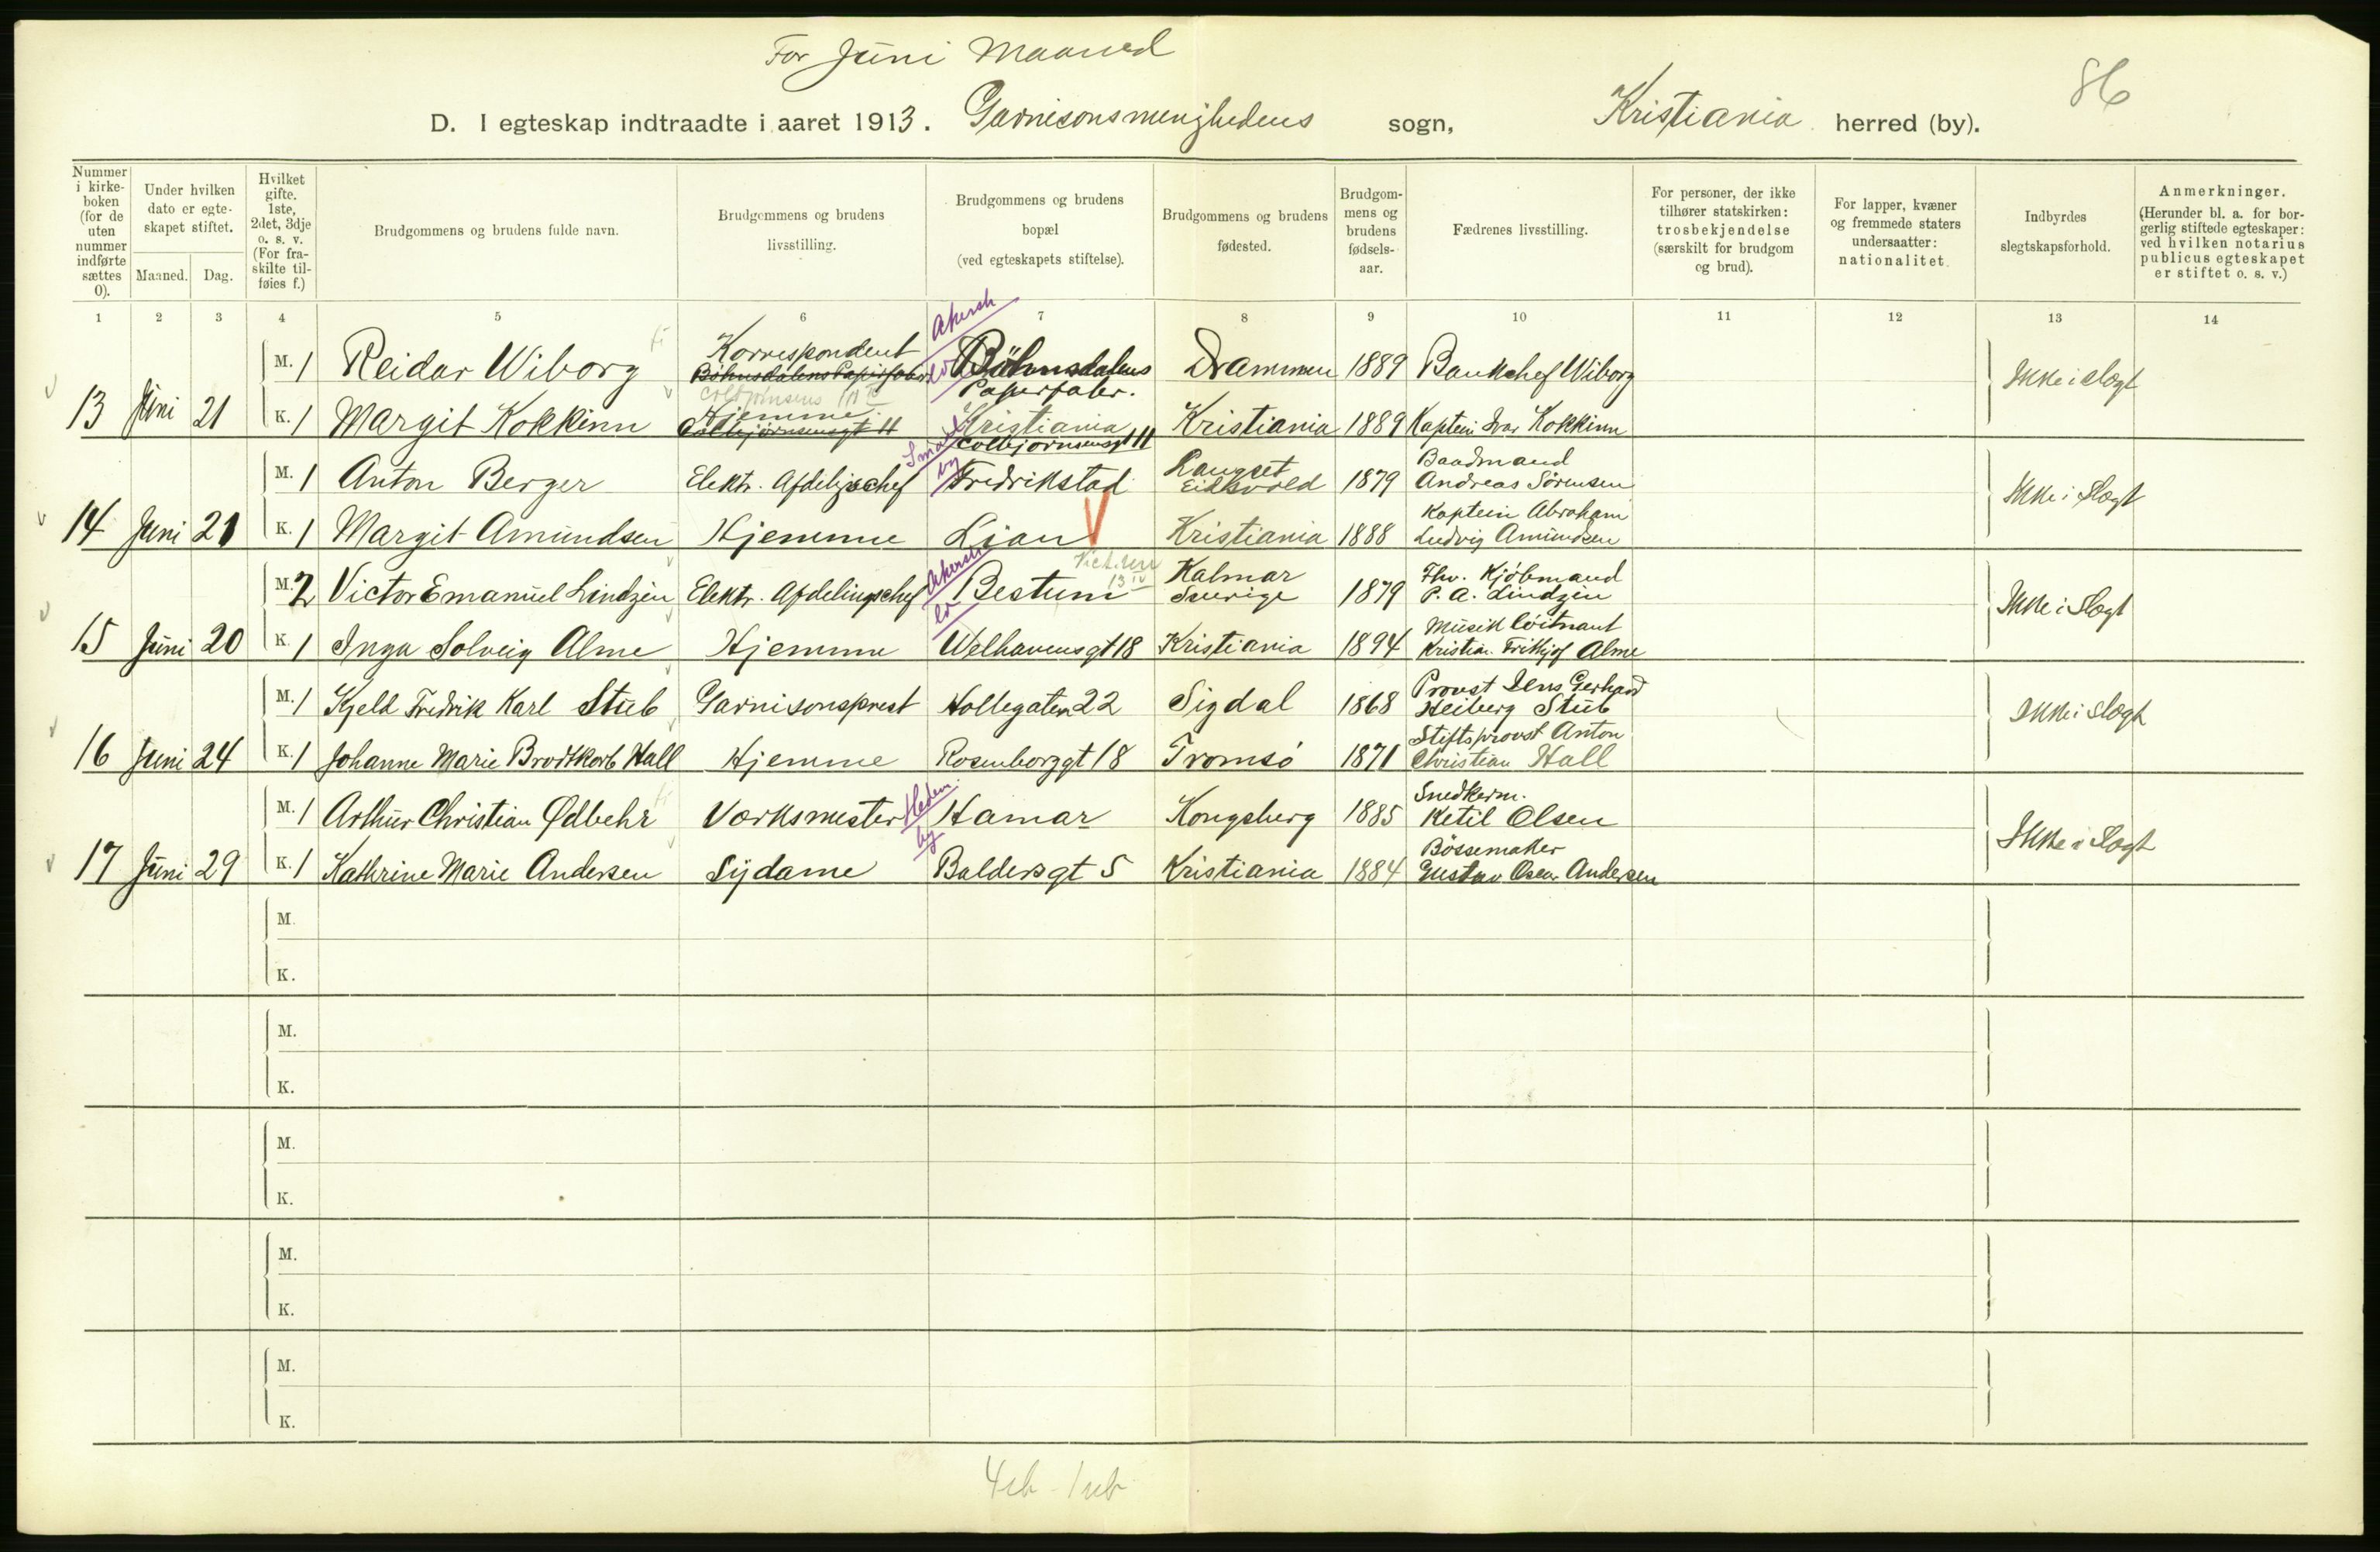 For Juni Maaned
86
D. I egteskap indtraadte i aaret 1913. Garnisonsmenighedens sogn, Kristiania herred (by).
Nummer i kirke-boken (for de uten nummer indførte sættes 0).
Under hvilken dato er egte-skapet stiftet.
Maaned. Dag.
Hvilket gifte. 1ste, 2det, 3dje o. s. v. (For fra-skilte til-føies f.)
Brudgommens og brudens fulde navn.
Brudgommens og brudens livsstilling.
Brudgommens og brudens bopæl (ved egteskapets stiftelse).
Brudgommens og brudens fødested.
Brudgom-mens og brudens fødsels-aar.
Fædrenes livsstilling.
For personer, der ikke tilhører statskirken: trosbekjendelse (særskilt for brudgom og brud).
For lapper, kvæner og fremmede staters undersaatter: nationalitet.
Indbyrdes slegtskapsforhold.
Anmerkninger. (Herunder bl. a. for bor-gerlig stiftede egteskaper: ved hvilken notarius publicus egteskapet er stiftet o. s. v.)
1 2 3 4 5 6 7 8 9 10 11 12 13 14
Akersh
M. 1 Reidar Wiborg Korrespondent Bøhnsdalens Papirfabr. Böhnsdalens Papirfabr. Drammen 1889 Bankchef Wiborg Ikke i slægt
13 Juni 21 K. 1 Margit Kokkinn Hjemme Colbjørnsensgt 11 Kristiania Colbjørnsensgt 11 Kristiania 1889 Kaptein Ivar Kokkinn
Smaal by
M. 1 Anton Berger Elektr. Afdelgschef Fredrikstad Langset Eidsvold 1879 Baadmand Andreas Sørensen Ikke i Slægt
14 Juni 21 K. 1 Margit Amundsen Hjemme Lian Kristiania 1888 Kaptein Abraham Ludvig Amundsen
Akersh
M. 2 Victor Emanuel Lindzén Elektr. Afdelingschef Bestum Kalmar Sverige 1879 Fhv. Kjöbmand P. A. Lindzén Ikke i Slægt
15 Juni 20 K. 1 Inga Solveig Alme Hjemme Welhavensgt 18 Kristiania 1894 Musik löitnant Kristian Frithjof Alme
M. 1 Kjeld Fredrik Karl Stub Garnisonsprest Holtegaten 22 Sigdal 1868 Provst Jens Gerhard Heiberg Stub Ikke i Slægt
16 Juni 24 K. 1 Johanne Marie Brodtkorb Hall Hjemme Rosenborggt 18 Tromsö 1871 Stiftsprovst Anton Christian Hall
Hedm. by
M. 1 Arthur Christian Ødbehr Værksmester Hamar Kongsberg 1885 Snedkerm. Ketil Olsen Ikke i Slægt
17 Juni 29 K. 1 Kathrine Marie Andersen Sydame Baldersgt 5 Kristiania 1884 Bössemaker Gustav Oscar Andersen
M.
K.
M.
K.
M.
K.
M.
K.
M.
K.
4 ib - 1 ub